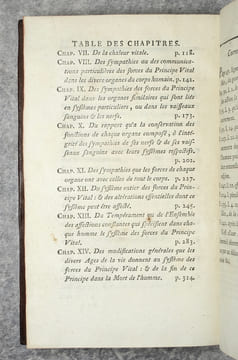 TABLE DES CHAPITRES.
CHAP. VII. De la chaleur vitale. p. 118.
CHAP. VIII. Des sympathies ou des communica-
tions particulières des forces du Principe Vital
dans les divers organes du corps humain. p. 142.
CHAP. IX. Des sympathies des forces du Principe
Vital dans les organes similaires qui sont liés
en systêmes particuliers, ou dans les vaisseaux
sanguins & les nerfs. p. 173.
CHAP. X. Du rapport qu'a la conservation des
fonctions de chaque organe composé, à l'inté-
grité des sympathies de ses nerfs & de ses vais-
seaux sanguins avec leurs systêmes respectifs.
p. 202.
CHAP. XI. Des sympathies que les forces de chaque
organe ont avec celles de tout le corps. p. 227.
CHAP. XII. Du systême entier des forces du Prin-
cipe Vital ; & des altérations essentielles dont ce
systême peut être affecté. p. 245.
CHAP. XIII. Du Tempérament ou de l'Ensemble
des affections constantes qui spécifient dans cha-
que homme le systême des forces du Principe
Vital. p. 283.
CHAP. XIV. Des modifications générales que les
divers Ages de la vie donnent au systême des
forces du Principe Vital : & de la fin de ce
Principe dans la Mort de l'homme. p. 324.